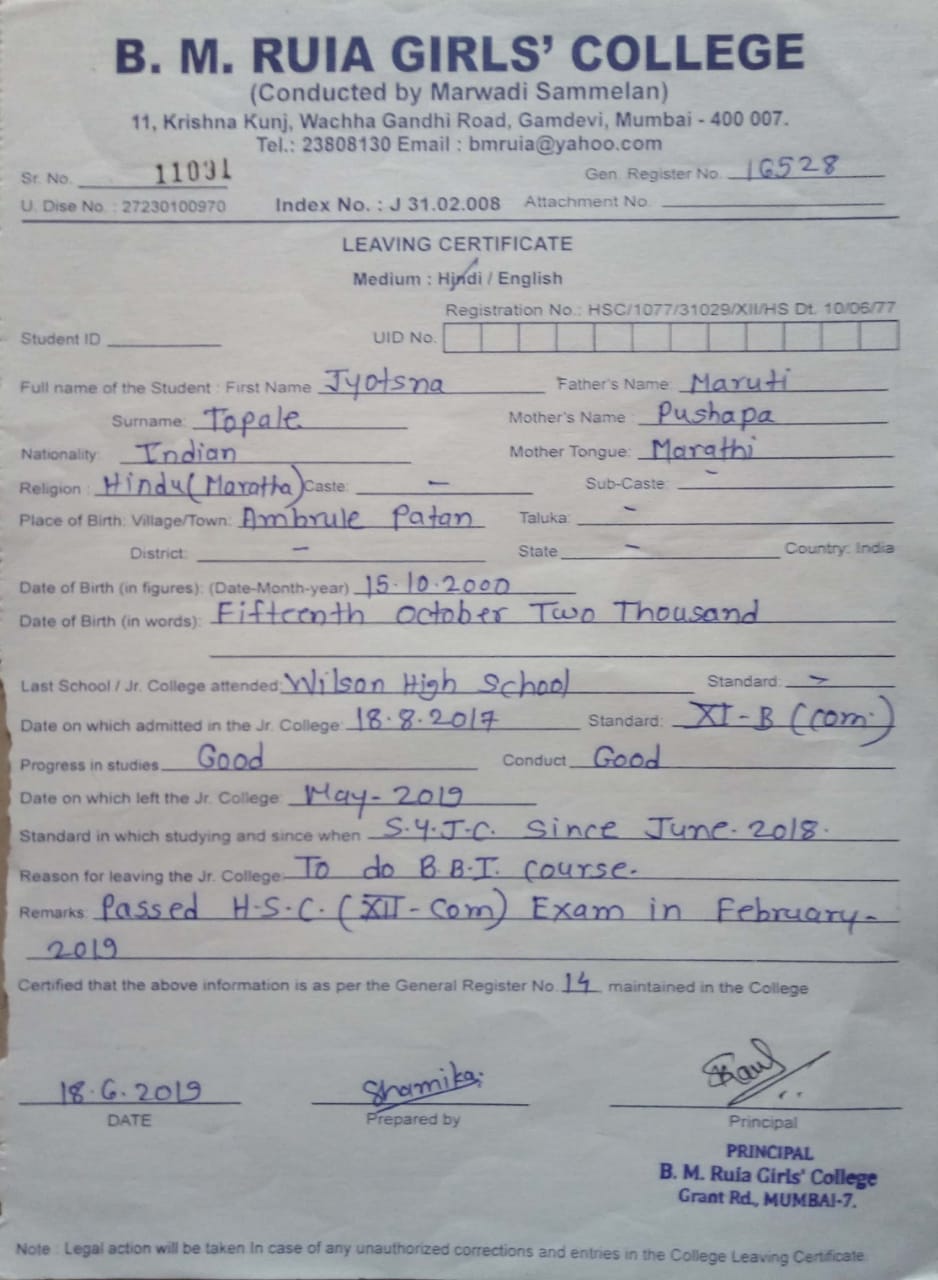 B. M. RUIA GIRLS' COLLEGE
(Conducted by Marwadi Sammelan)
11, Krishna Kunj, Wachha Gandhi Road, Gamdevi, Mumbai - 400 007.
Tel.: 23808130 Email : bmruia@yahoo.com
Sr. No. 11031 Gen. Register No. 16528
U. Dise No. : 27230100970 Index No. : J 31.02.008 Attachment No.
LEAVING CERTIFICATE
Medium : Hindi / English
Registration No.: HSC/1077/31029/XII/HS Dt. 10/06/77
Student ID UID No.
Full name of the Student : First Name Jyotsna Father's Name: Maruti
Surname: Topale Mother's Name : Pushapa
Nationality: Indian Mother Tongue: Marathi
Religion : Hindu (Maratha) Caste: - Sub-Caste: -
Place of Birth: Village/Town: Ambrule Patan Taluka: -
District: - State - Country: India
Date of Birth (in figures): (Date-Month-year) 15.10.2000
Date of Birth (in words): Fifteenth October Two Thousand
Last School / Jr. College attended: Wilson High School Standard: -
Date on which admitted in the Jr. College: 18.8.2017 Standard: XI-B (com.)
Progress in studies Good Conduct Good
Date on which left the Jr. College: May-2019
Standard in which studying and since when S.Y.J.C. Since June. 2018.
Reason for leaving the Jr. College: To do B.B.I. Course.
Remarks: Passed H.S.C. (XII-Com) Exam in February-
2019
Certified that the above information is as per the General Register No. 14 maintained in the College
18.6.2019 Shamika
DATE Prepared by Principal
PRINCIPAL
B. M. Ruia Girls' College
Grant Rd., MUMBAI-7.
Note : Legal action will be taken In case of any unauthorized corrections and entries in the College Leaving Certificate.